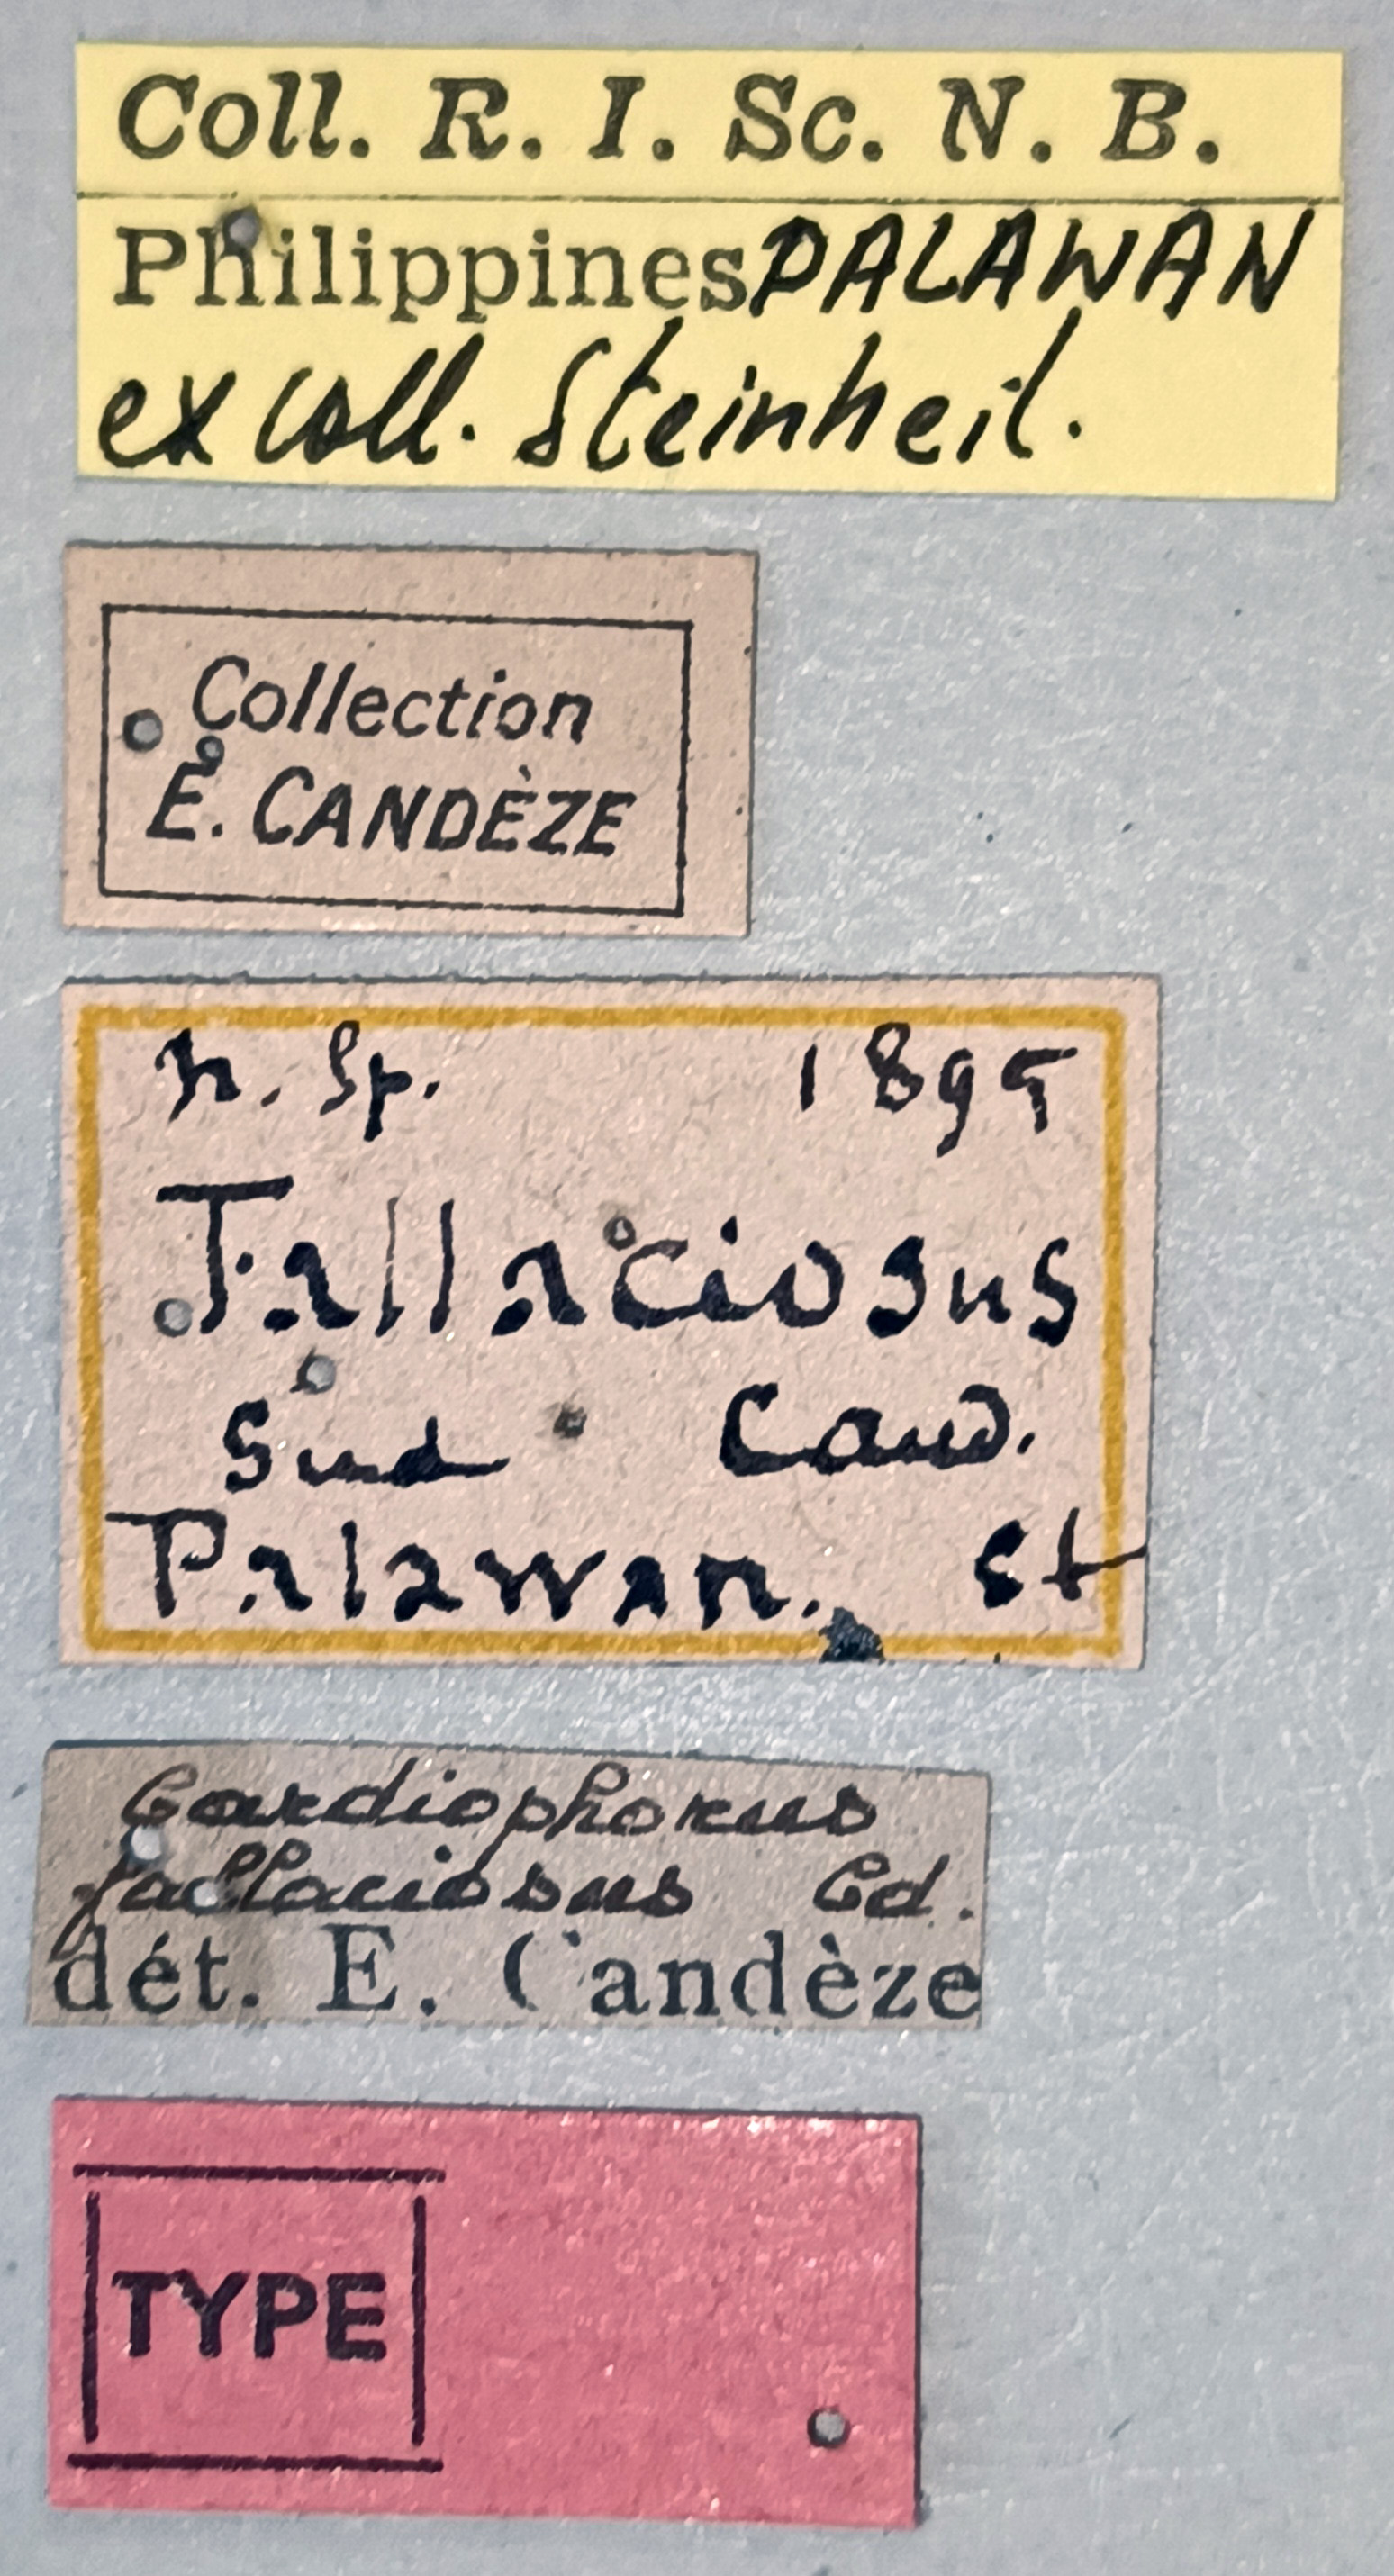 Coll. R. I. Sc. N. B.
Philippines PALAWAN
ex coll. Steinheil.
Collection
E. CANDÈZE
n. sp. 1895
Fallaciosus
Cand.
Palawan. St
Cardiophorus
fallaciosus Cd.
dét. E. Candèze
TYPE